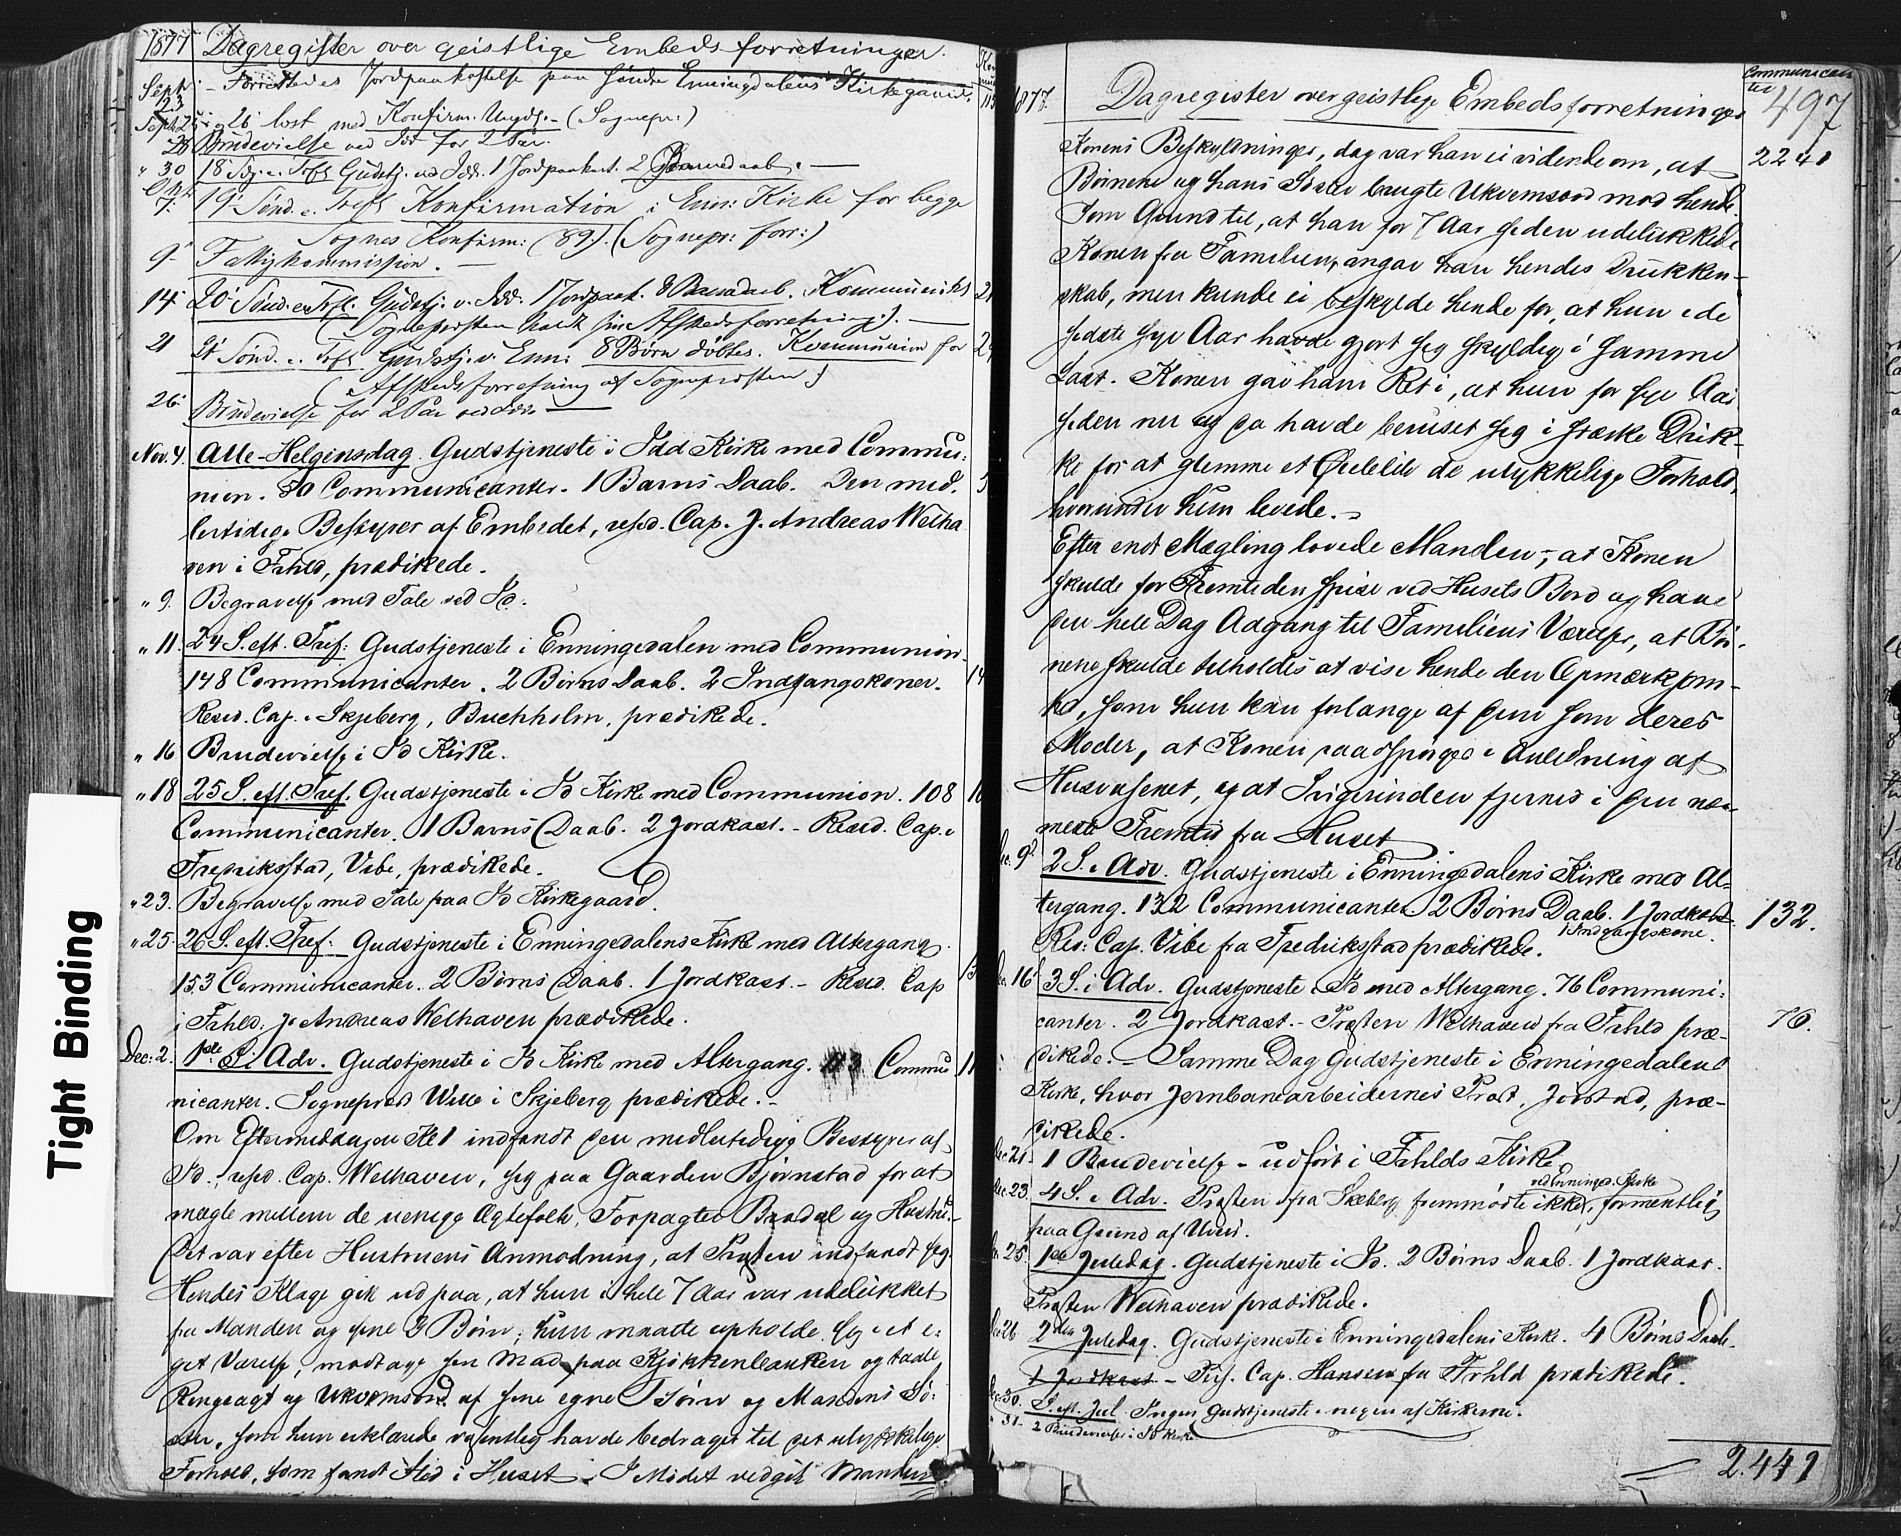 1877 Dagregister over geistlige Embedsforretninger.
Septr 23 - Forrettedes Jordpaakastelse paa søndre Enningdalens Kirkegaard.
Sept 25 og 26 lost med Konfirm: Ungd: - (Sognepr:)
28 Brudevielse ved Idd for 2 Par.
" 30 18 Sdg. e. Trfs Gudstj. ved Idd. 1 Jordpaakast. 2 Barnedaab. -
Okt. 7. 19' Sønd. e. Trefs Konfirmation i Enn: Kirke for begge
Sognes Konfirm: (89). (Sognepr: forr:)
9' Fattigkommission. -
14' 20' Sønd. e. Trfs. Gudstj: v. Idd. 1 Jordpaak. 8 Barnedaab. Kommunion 21
(Sogneprestens holdt sin Afskedsforretning). -
21 21' Sønd. e. Trefs Gudstj. v. Enn: 8 Børn døbtes. Kommunion for 2
(Afskedsforretning af Sognepresten.)
26' Brudevielse for 2 Par ved Idd. -
Nov. 4. Alle-Helgensdag. Gudstjeneste i Idd Kirke med Commu:
nion. 50 Communicanter. 1 Barns Daab. Den mid. 5
lertidige Bestyrer af Embedet, resd. Cap. J. Andreas Welha
ven i Frhld, prædikede.
" 9. Begravelse med Tale ved Id.
" 11. 24 S. eft. Tref: Gudstjeneste i Enningedalen med Communion.
148 Communicanter. 2 Børns Daab. 2 Indgangskoner. 14
Resd. Cap. i Skjeberg, Buchholm, prædikede.
" 16 Brudevielse i Id Kirke.
" 18 25 S. eft. Tref: Gudstjeneste i Id Kirke med Communion. 108 10
Communicanter. 1 Barns Daab. 2 Jordkast. - Resd. Cap. i
Fredriksstad, Vibe, prædikede.
" 23. Begravelse med Tale paa Id Kirkegaard.
" 25. 26 S. eft. Tref: Gudstjeneste i Enningedalens Kirke med Altergang.
153 Communicanter. 2 Børns Daab. 1 Jordkast. - Resd. Cap 15
i Frhld. J. Andreas Welhaven prædikede.
Dec: 2. 1ste S. i Adv. Gudstjeneste i Id Kirke med Altergang. 113 Commu 11
nicanter. Sogneprest Wille i Skjeberg prædikede. -
Om Eftermiddagen Kl 1 indfandt den midlertidige Bestyrer af
Id, resd. Cap. Welhaven, sig paa Gaarden Bjørnstad for at
mægle mellem de uenige Ægtefolk, Forpagter Brødal og Hustru.
Det var efter Hustruens Anmodning, at Presten indfandt sig.
Hendes Klage gik ud paa, at hun i hele 7 Aar var udelukket
fra Manden og sine 3 Børn; hun maatte opholde sig i et e:
get Værelse, modtage sin Mad paa Kjøkkenbænken og taale
Ringeagt og Ukvemsord af sine egne Børn og Mandens Sø:
ster, som hun erklærede væsentlig havde bidraget til det ulykkelige
Forhold, som fandt Sted i Huset. - I Mødet vedgik Manden
1877. Dagregister over geistlige Embedsforretninger Communicanter 497
Konens Beskyldninger, dog var han ei vidende om, at 2241
Børnene og hans Søster brugte Ukvemsord mod hende.
Som Grund til, at han for 7 Aar siden udelukkede
Konen fra Familien, angav han hendes Drukken-
skab, men kunde ei beskylde hende for, at hun i de
sidste syv Aar havde gjort sig skyldig i samme
Last. Konen gav ham Ret i, at hun for syv Aar
siden nu og da havde beruset sig i stærke Drik-
ke for at glemme et Øieblik de ulykkelige Forhold,
hvorunder hun levede. -
Efter endt Mægling lovede Manden, at Konen
skulde for Fremtiden spise ved Husets Bord og have
den hele Dag Adgang til Familiens Værelser, at Bør-
nene skulde tilholdes at vise hende den Opmærksom-
hed, som hun kan forlange af dem som deres
Moder, at Konen raadspørges i Anledning af
Husvæsenet, og at Svigerinden fjernes i den nær-
meste Fremtid fra Huset.
Dec: 9d. 2 S. i Adv. Gudstjeneste i Enningedalens Kirke med Al-
tergang. 132 Communicanter. 2 Børns Daab. 1 Jordkast. 132.
1 Indgangskone.
Res: Cap. Vibe fra Fredriksstad prædikede.
Dec. 16 3 S. i Adv. Gudstjeneste i Id med Altergang. 76 Communi:
canter. 2 Jordkast. - Presten Welhaven fra Frhld præ- 76.
dikede. - Samme Dag Gudstjeneste i Enningedalens
Kirke, hvor Jernbanearbeidernes Prest, Jørstad, præ-
dikede.
Dec 21. 1 Brudevielse - udført i Frhlds Kirke
Dec 23. 4 S. i Adv. Presten fra Skeberg fremmødte ikke ved Enninged. Kirke, formentlig
paa Grund af Uveir.
25. 1ste Juledag. Gudstjeneste i Id. 2 Børns Daab. 1 Jordkast.
Presten Welhaven prædikede.
Dec 26 2den Juledag. Gudstjeneste i Enningedalens Kirke. 4 Børns Daab.
1 Jordkast - Pers. Cap. Hansen fra Frhld prædikede.
Dec. 30. S. eft. Jul Ingen Gudstjeneste i nogen af Kirkerne.
" 31. 2 Brudevielser i Id Kirke.
2.449
Tight Binding